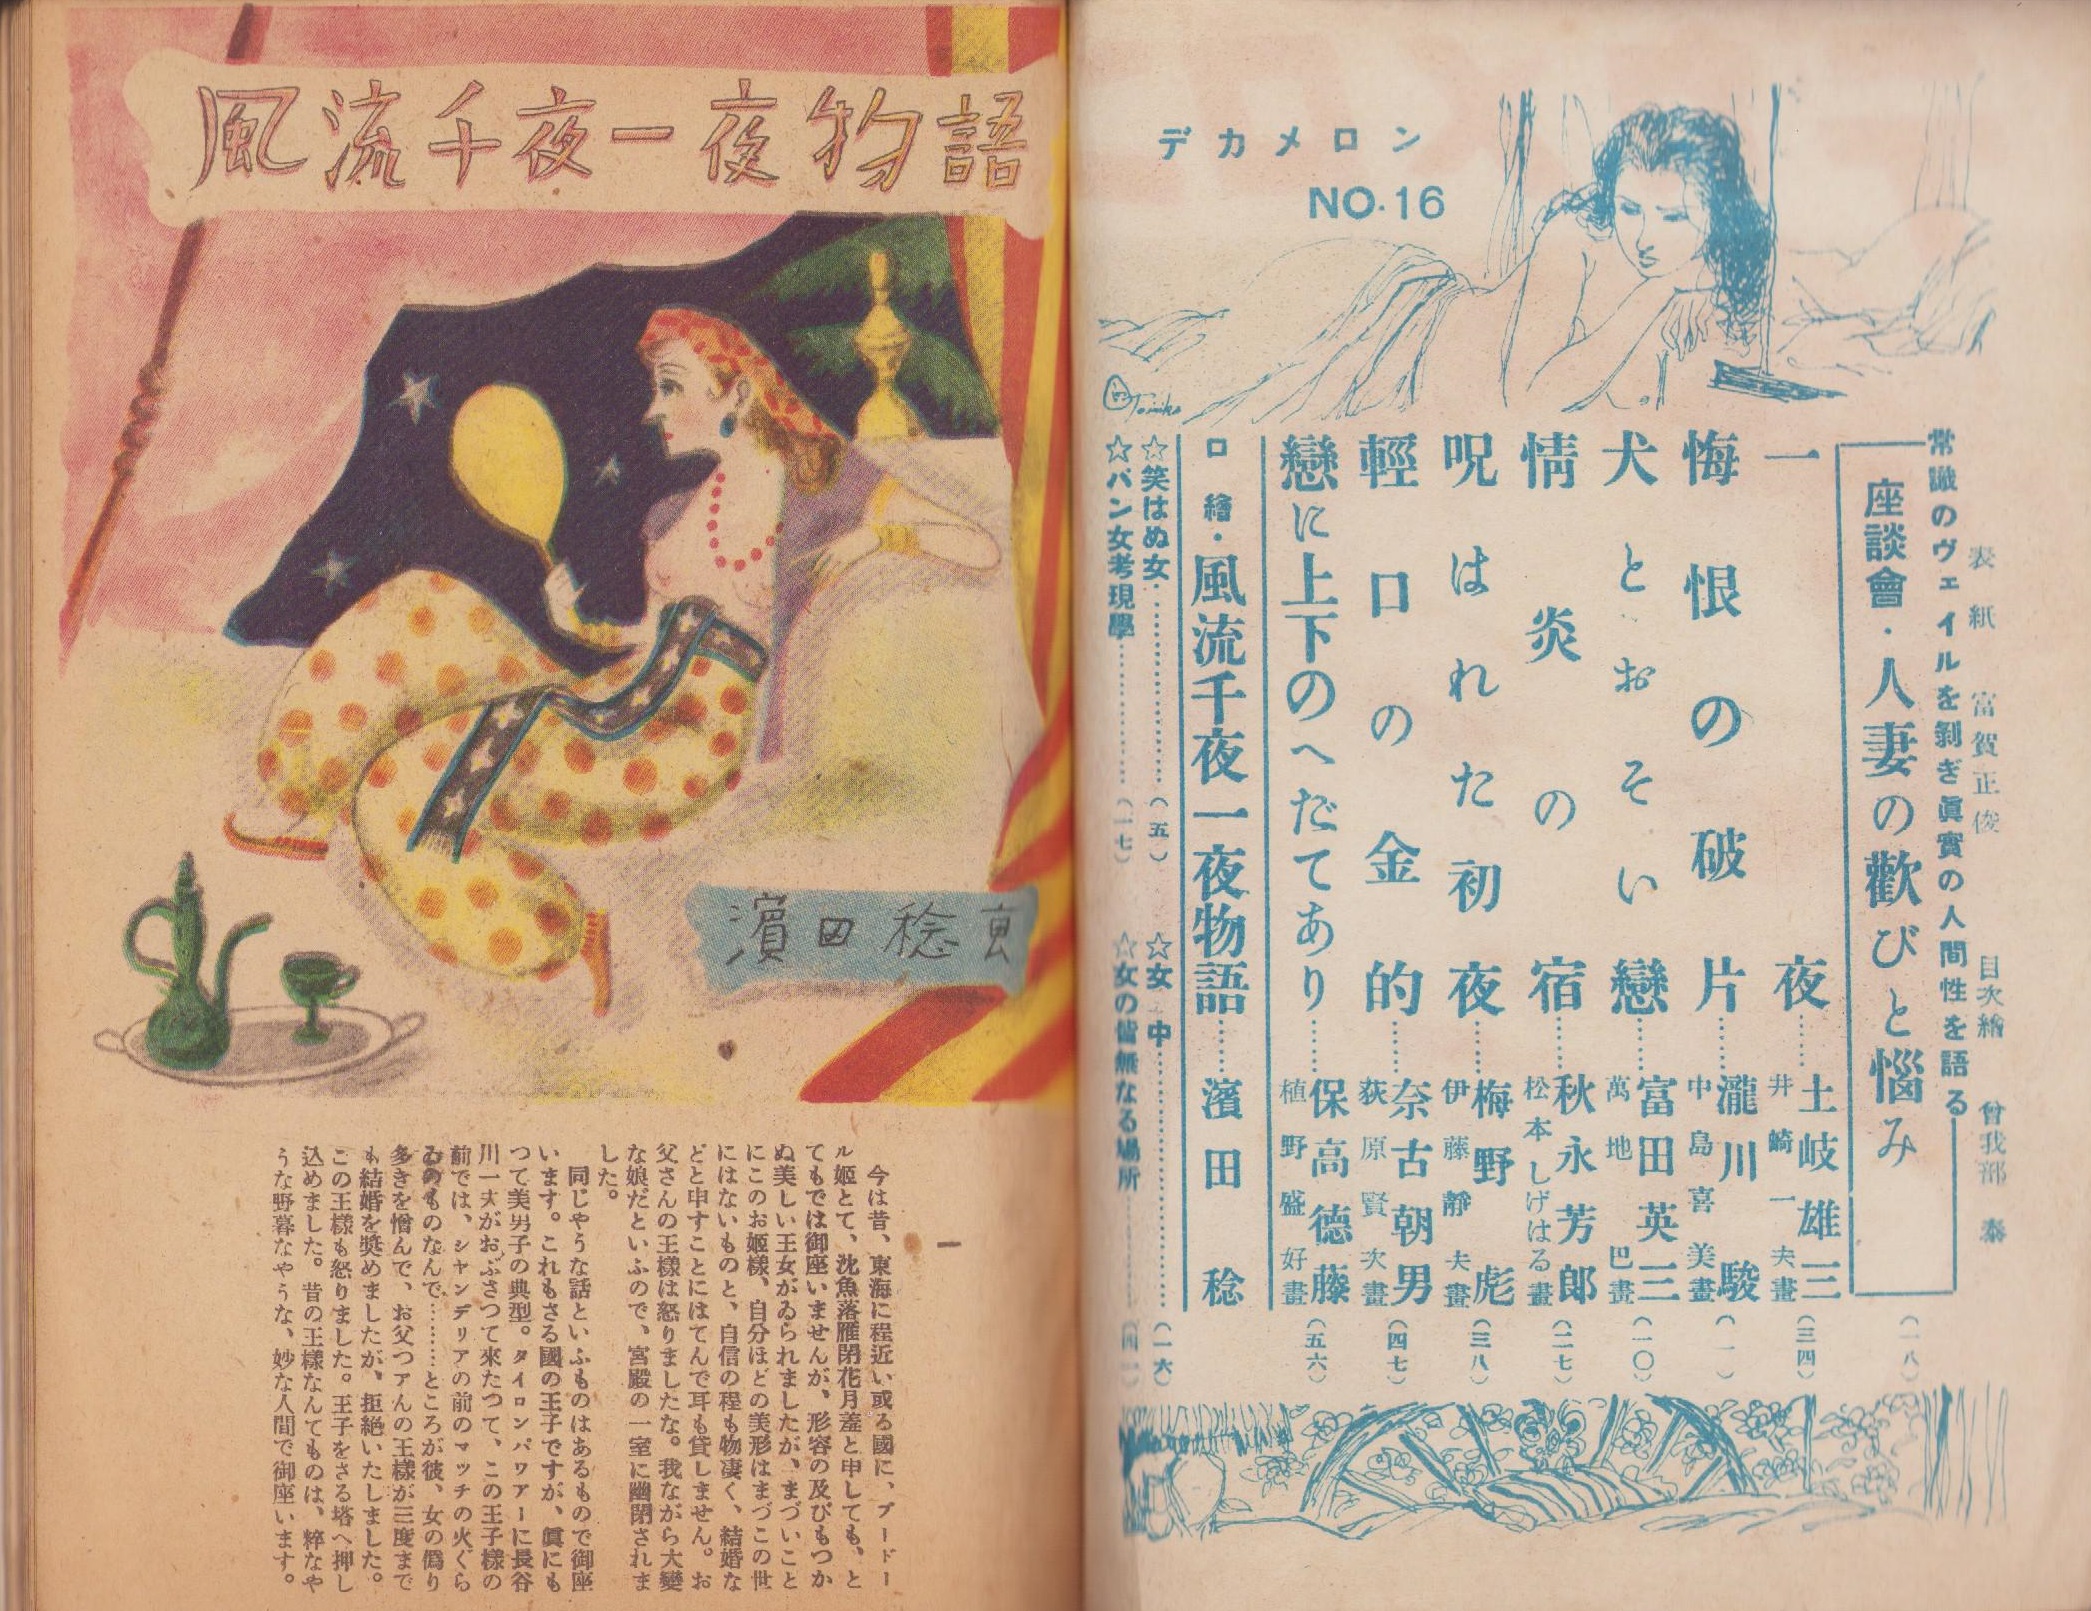 デカメロン
NO.16
Tomiko
表紙 富賀正俊
目次繪 曾我部泰
常識のヴェイルを剝ぎ眞實の人間性を語る
座談會・人妻の歡びと惱み (一八)
一夜……土岐雄三 (三四)
井崎一夫畫
悔恨の破片……瀧川駿 (一)
中島喜美畫
犬とおそい戀……富田英三 (一〇)
萬地巴畫
情炎の宿……秋永芳郎 (二七)
松本しげはる畫
呪はれた初夜……梅野彪 (三八)
伊藤靜夫畫
輕口の金的……奈古朝男 (四七)
荻原賢次畫
戀に上下のへだてあり……保高德藤 (五六)
植野盛好畫
口繪・風流千夜一夜物語……濱田稔
☆笑はぬ女………(五)
☆女中………(一六)
☆パン女考現學………(一七)
☆女の皆無なる場所………(四一)
風流千夜一夜物語
濱田稔
一
今は昔、東海に程近い或る國に、ブードー
ル姫とて、沈魚落雁閉花月羞と申しても、と
てもでは御座いませんが、形容の及びもつか
ぬ美しい王女がゐられましたが、まづいこと
にこのお姫樣、自分ほどの美形はまづこの世
にはないものと、自信の程も物凄く、結婚な
どと申すことにはてんで耳も貸しません。お
父さんの王樣は怒りましたな。我ながら大變
な娘だといふので、宮殿の一室に幽閉されま
した。
同じやうな話といふものはあるもので御座
います。これもさる國の王子ですが、眞にも
つて美男子の典型。タイロンパワアーに長谷
川一夫がおぶさつて來たつて、この王子樣の
前では、シャンデリアの前のマッチの火ぐら
ゐのものなんで………ところが彼、女の僞り
多きを憎んで、お父つアんの王樣が三度まで
も結婚を奬めましたが、拒絶いたしました。
この王樣も怒りました。王子をさる塔へ押し
込めました。昔の王樣なんてものは、粹なや
うな野暮なやうな、妙な人間で御座います。